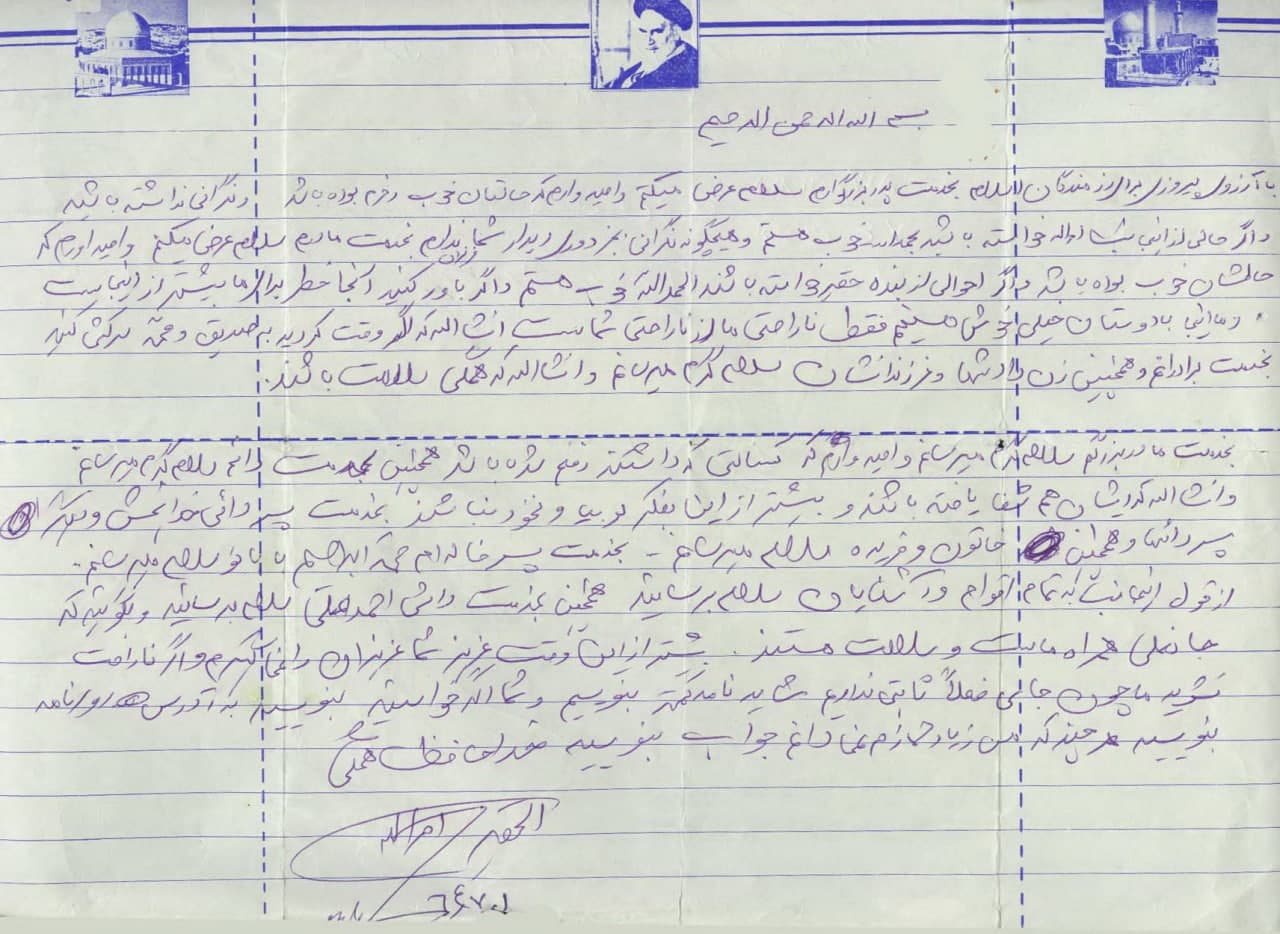 بسم الله الرحمن الرحیم
با آرزوی پیروزی برای رزمندگان اسلام بخدمت پدر بزرگوارم سلام عرض میکنم و امیدوارم که حالتان خوب و خرم بوده باشد و نگرانی نداشته باشید
و اگر حالی از اینجانب انشاالله خواسته باشید بحمدالله خوب هستم و هیچگونه نگرانی بجز دوری دیدار شما عزیزان ندارم بخدمت مادرم سلام عرض میکنم و امیداورم که
حالشان خوب بوده باشد و اگر احوالی از بنده حقیر خواسته باشند الحمدالله خوب هستم و اگر باور کنید آنجا خطر برای ما بیشتر از اینجاست
و ما اینجا با دوستان خیلی خوش هستیم فقط ناراحتی ما از ناراحتی شماست انشاالله که اگر وقت کردید به صدیق و عمه سرکشی کنید
بخدمت برادرانم و همچنین زن داداشها و فرزندانشان سلام گرم میرسانم و انشاالله که همگی سلامت باشند.
بخدمت مادربزرگم سلام گرم میرسانم و امیدوارم که کسالتی که داشتند رفع شده باشد همچنین بخدمت دائیم سلام گرم میرسانم
و انشاالله که ایشان هم شفا یافته باشند و بیشتر از این بفکر بیا و نخود نباشند بخدمت پسر دائی خدابخش و دیگر
پسر دائیها و همچنین خاتون و فریده سلام میرسانم - بخدمت پسر خاله ام محمد ابراهیم با بانو سلام میرسانم -
از قول اینجانب به تمام اقوام و آشنایان سلام برسانید همچنین بخدمت دائی احمد سلام برسانید و بگوئید که
همراه ماست و سلامت هستند. بیشتر از این وقت عزیز شما عزیزان را نمیگیرم و اگر ناراحت
نشوید ما چون جائی فعلاً ثابتی نداریم شاید نامه کمتر بنویسیم و شما اگر خواستید بنویسید به آدرس نامه
بنویسید هر چند که من زیاد جواب بنویسید خداحافظ همگی
الحقیر امرالله